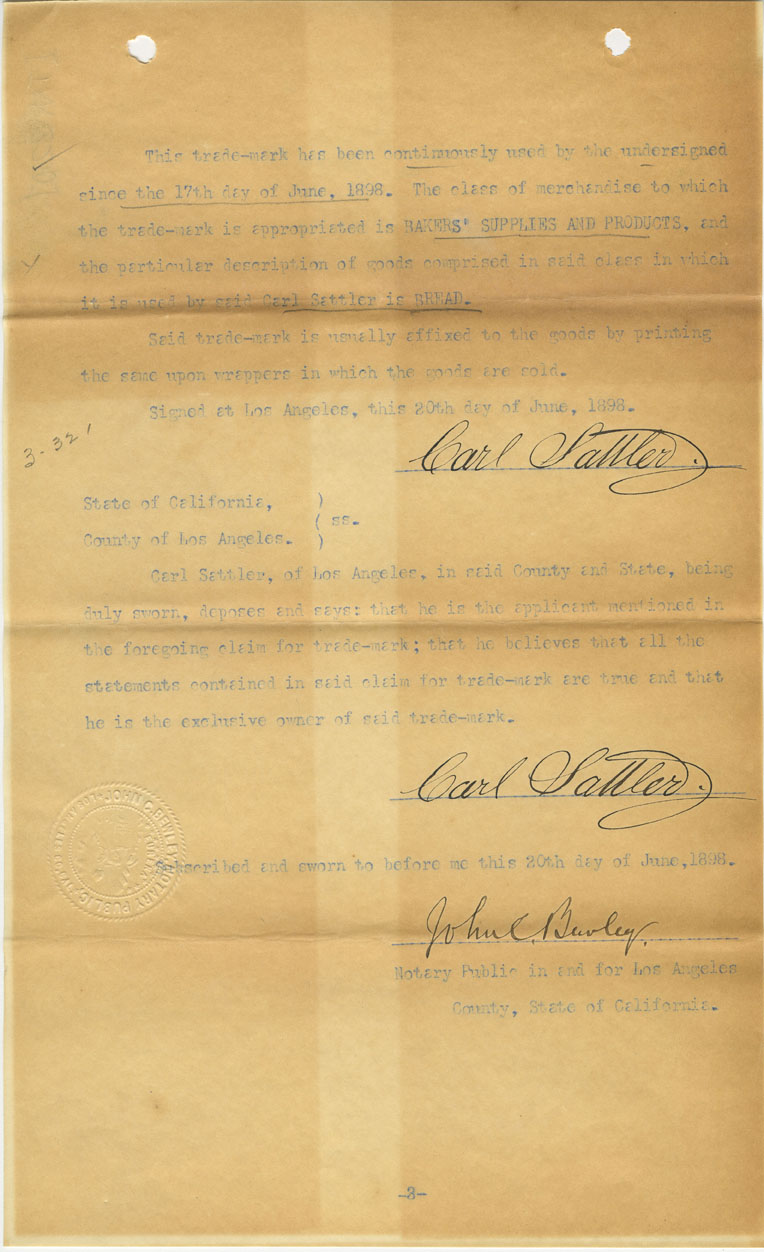 This trade-mark has been continuously used by the undersigned
since the 17th day of June, 1898. The class of merchandise to which
the trade-mark is appropriated is BAKERS' SUPPLIES AND PRODUCTS, and
the particular description of goods comprised in said class in which
it is used by said Carl Sattler is BREAD.
Said trade-mark is usually affixed to the goods by printing
the same upon wrappers in which the goods are sold.
Signed at Los Angeles, this 20th day of June, 1898.
3-32
Carl Sattler.
State of California, )
( ss.
County of Los Angeles. )
Carl Sattler, of Los Angeles, in said County and State, being
duly sworn, deposes and says: that he is the applicant mentioned in
the foregoing claim for trade-mark; that he believes that all the
statements contained in said claim for trade-mark are true and that
he is the exclusive owner of said trade-mark.
Carl Sattler.
JOHN C. BEWLEY NOTARY PUBLIC
Subscribed and sworn to before me this 20th day of June,1898.
John C. Bewley.
Notary Public in and for Los Angeles
County, State of California.